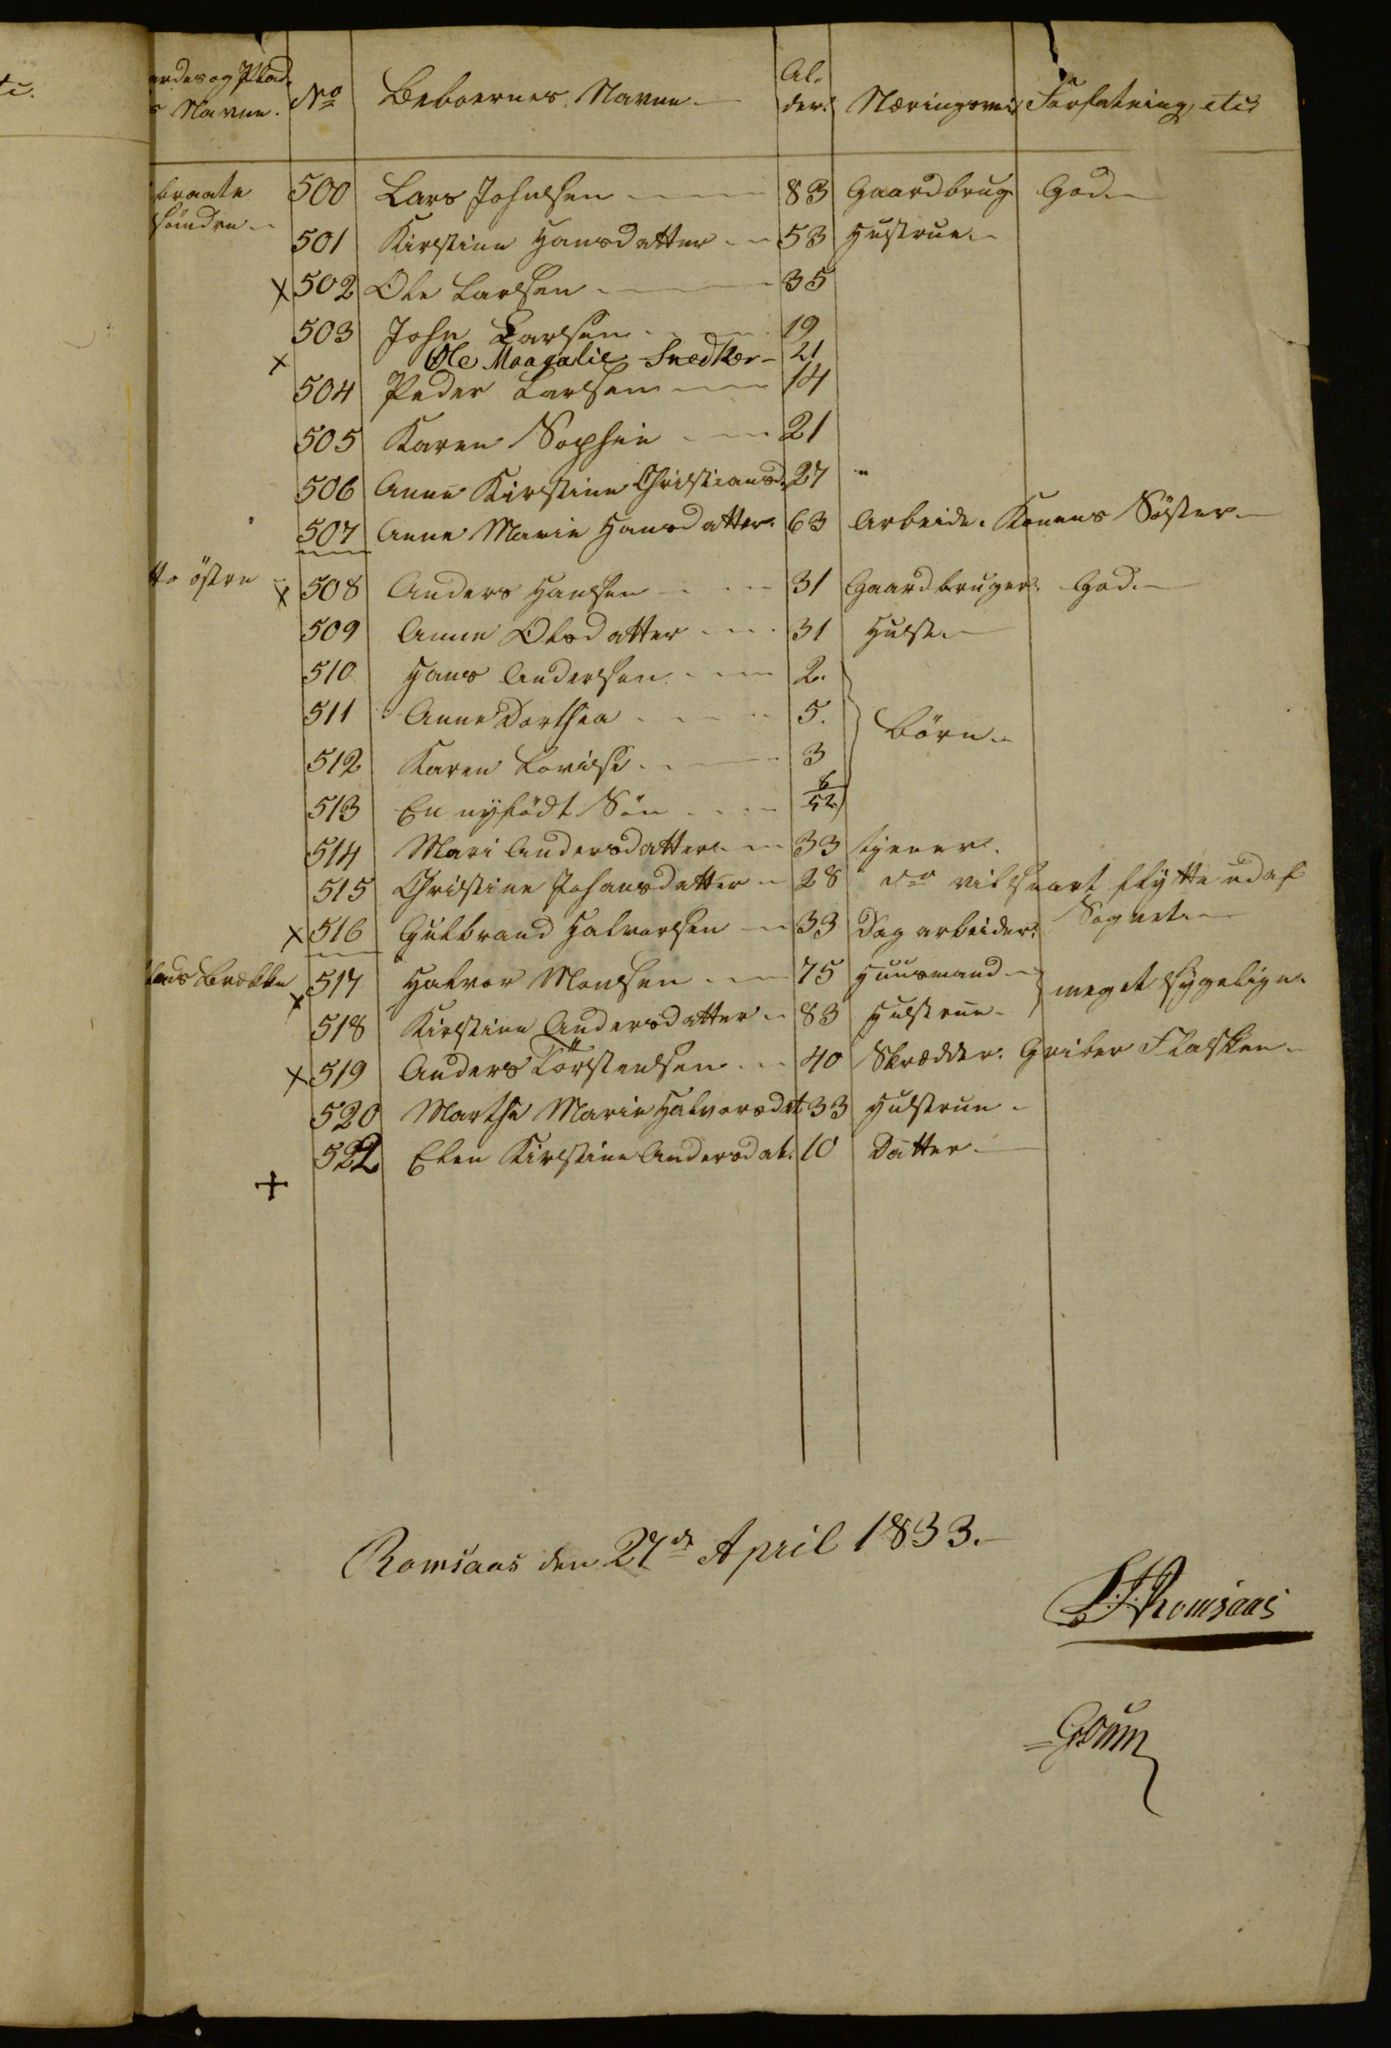 ardes og Plad. Al.
s Navne. No Beboernes Navne. der. Næringsvei Forfatning etc
braate 500 Lars Johnsen 83 Gaardbrug God.
söndre 501 Kirstine Hansdatter 53 Hustrue.
x 502 Ole Larsen 35
503 John Larsen 19
x Ole Maagalie Snedker 21
504 Peder Larsen 14
505 Karen Sophie 21
506 Anne Kirstine Christiansd. 27 "
507 Anne Marie Hansdatter 63 Arbeide. Konens Söster
tto östre x 508 Anders Hansen 31 Gaardbruger. God.
509 Anne Olsdatter 31 Hust.
510 Hans Andersen 2.
511 Anne Dorthea 5. Börn.
512 Karen Lovise 3
513 En nyfödt Sön 6/52
514 Mari Andersdatter 33 tjener.
515 Christine Johansdatter 28 do vil snart flytte ud af
x 516 Gulbrand Halvorsen 33 Dagarbeider. Sognet.
Brække 517 Halvor Monsen 75 Huusmand meget sygelige.
x 518 Kirstine Andersdatter 83 Hustrue
x 519 Anders Törstensen 40 Skrædder. Griber Flasken
520 Marthe Marie Halvorsdt 33 Hustrue
522 Elen Kirstine Andersdat. 10 Datter
+
Romsaas den 27de April 1833.
Romsaas